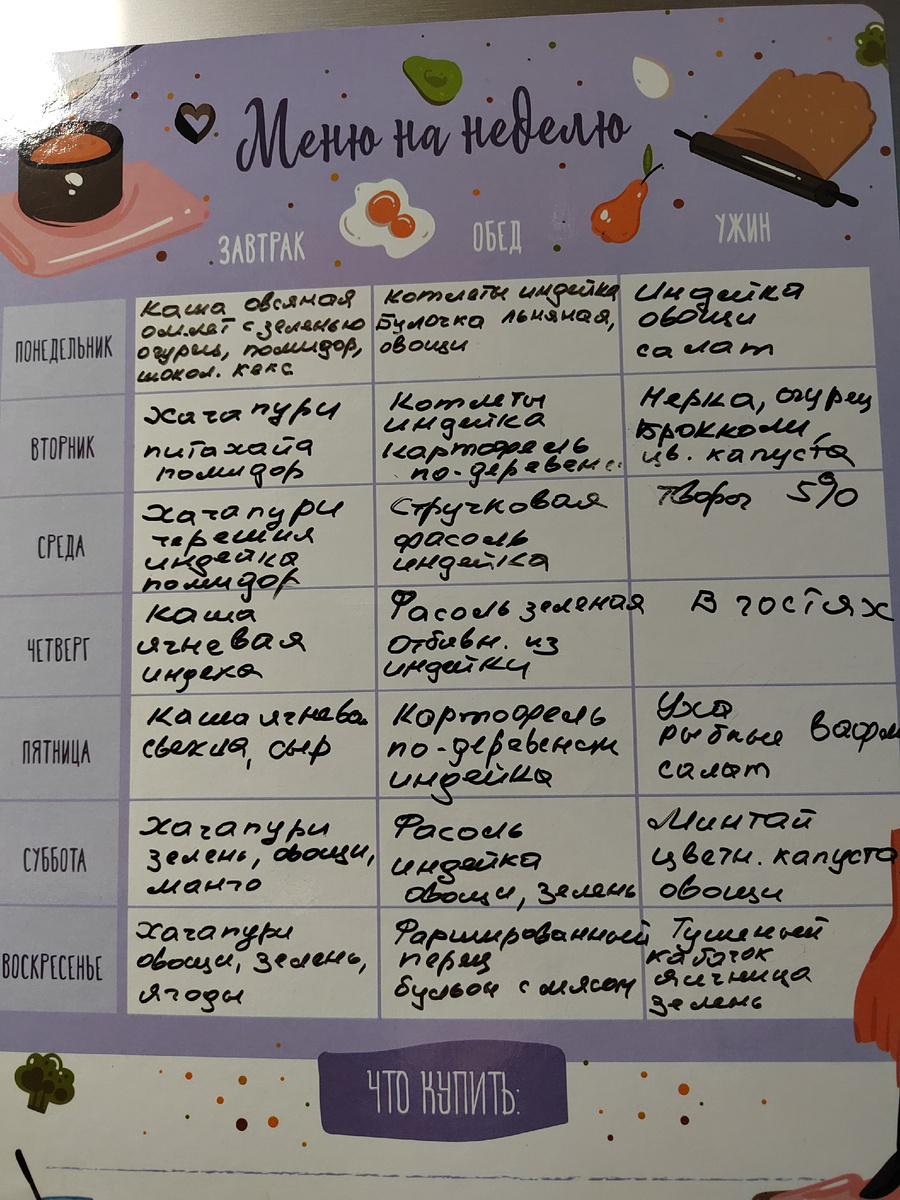 Меню на неделю
ЗАВТРАК ОБЕД УЖИН
ПОНЕДЕЛЬНИК
Каша овсяная
омлет с зеленью
огурец, помидор,
шокол. кекс
Котлеты индейка
Булочка льняная,
овощи
Индейка
овощи
салат
ВТОРНИК
Хачапури
питахайя
помидор
Котлеты
индейка
картофель
по-деревенс
Нерка, огурец
Брокколи,
цв. капуста
СРЕДА
Хачапури
черешня
индейка
помидор
Стручковая
фасоль
индейка
Творог 5%
ЧЕТВЕРГ
Каша
ячневая
индека
Фасоль зеленая
отбивн. из
индейки
В гостях
ПЯТНИЦА
Каша ячнева
свекла, сыр
Картофель
по-деревенск
индейка
Уха
рыбные вафл
салат
СУББОТА
Хачапури
зелень, овощи,
манго
Фасоль
индейка
овощи, зелень
Минтай
цветн. капуста
овощи
ВОСКРЕСЕНЬЕ
Хачапури
овощи, зелень,
ягоды
Фаршированный
перец
бульон с мясом
Тушеный
кабачок
яичница
зелень
ЧТО КУПИТЬ: